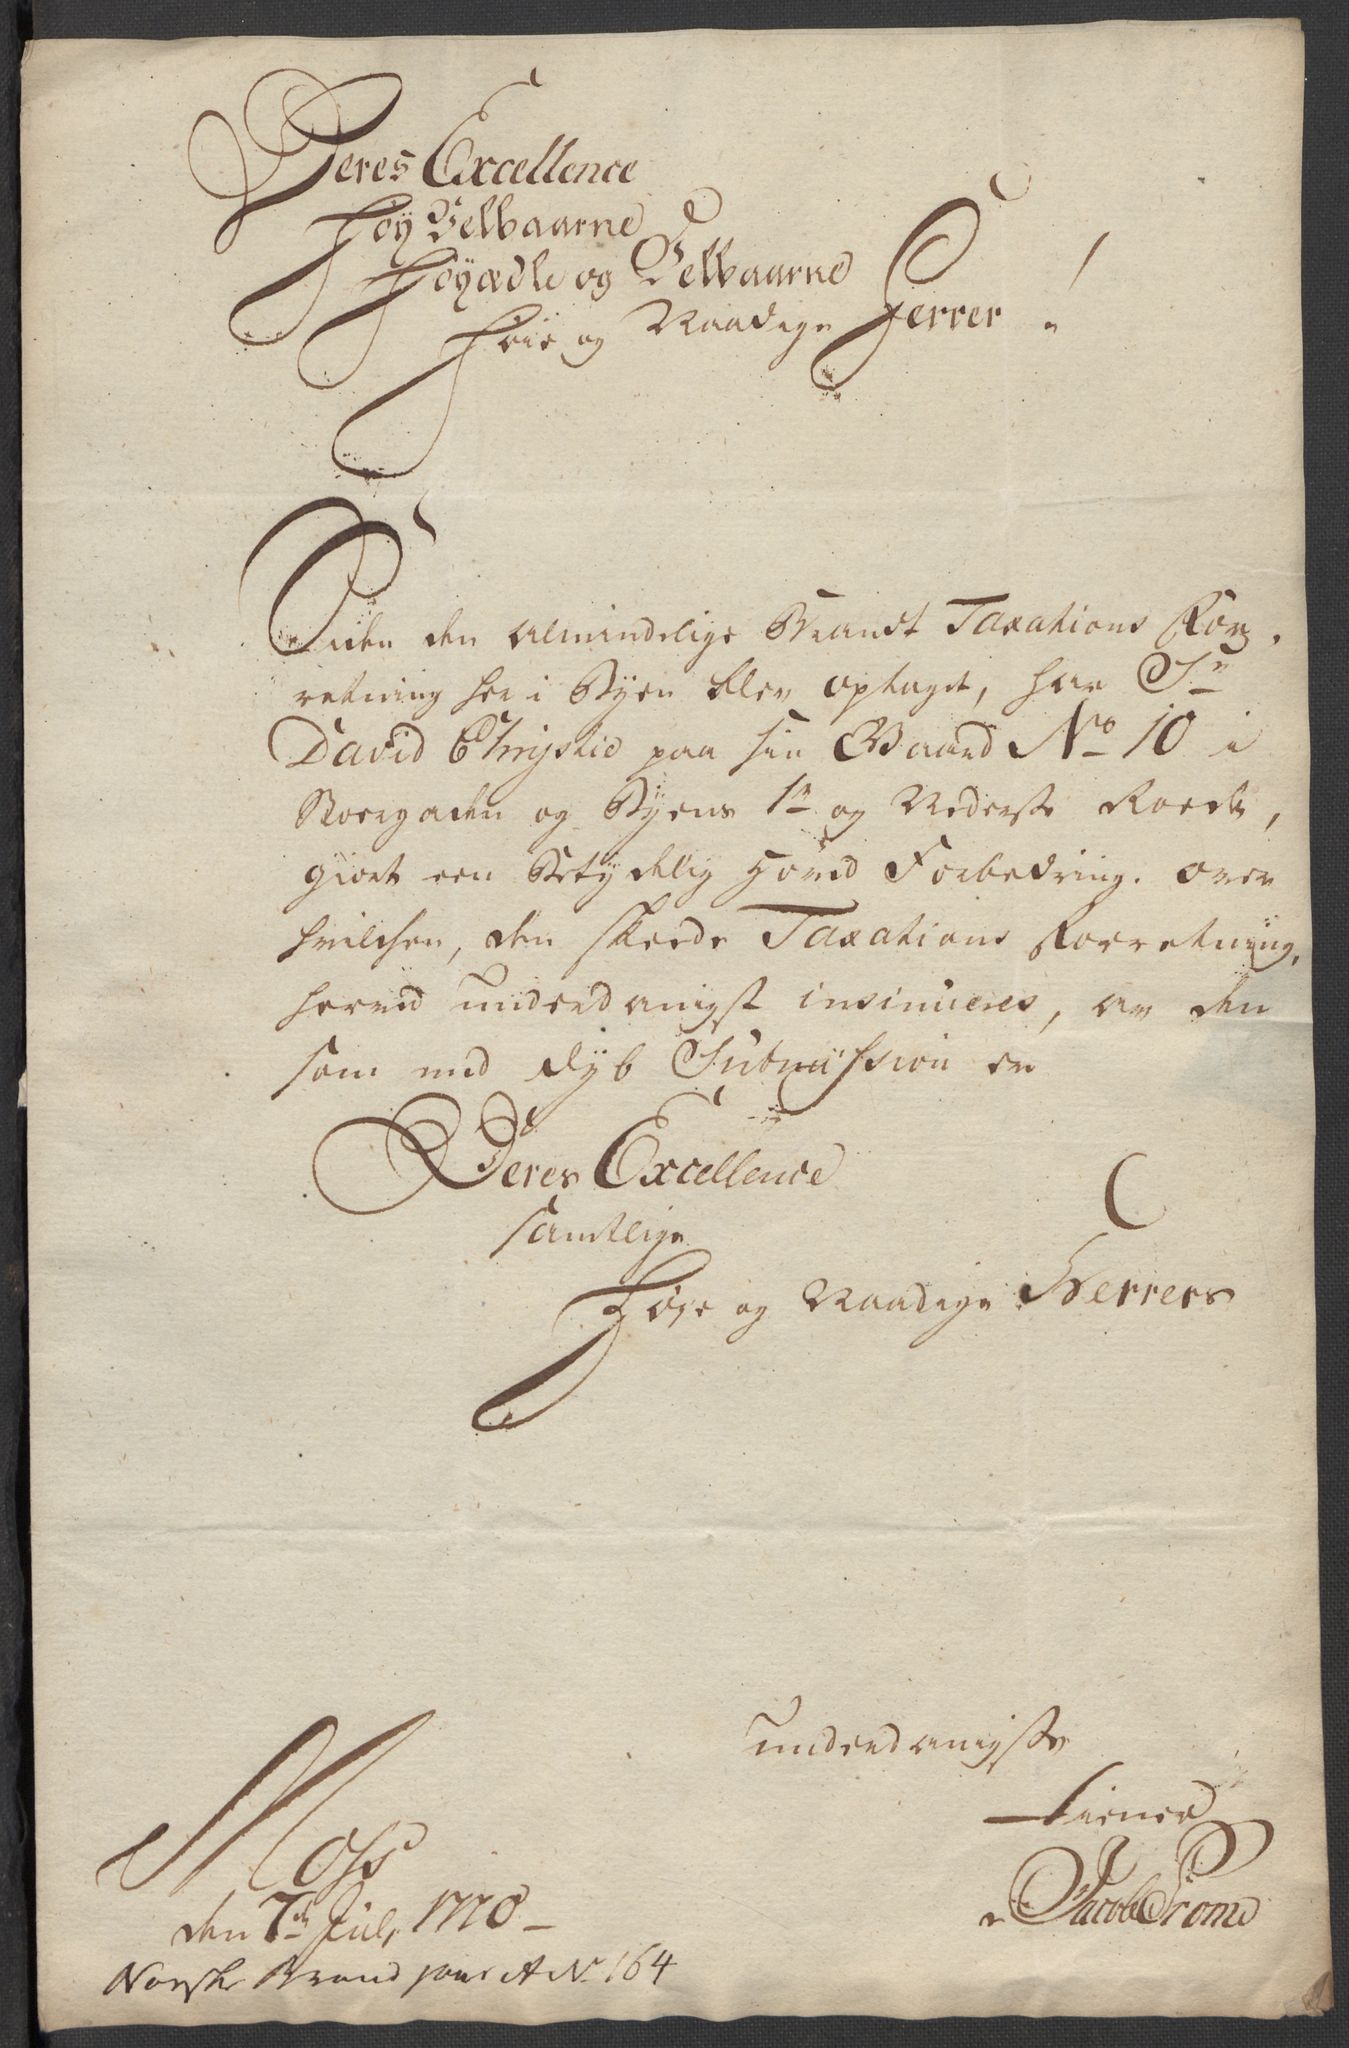 Deres Excellence
Høy Velbaarne
Høyædle og Velbaarne
Høie og Naadige Herrer!
Siden den almindelige Brandt Taxations For,
retning her i Byen blev optaget, har Sr
David Chrystie paa sin Gaard No 10 i
Storgaden og Byens 1te og Nederste Roede,
giort een Betydelig Hoved Forbedring. over
hvilchen, den skeede Taxations Forretning,
herved underdanigst insinueres, av den
som med dyb Submission er
Deres Excellence
samtlige
Høye og Naadige Herrers
underdanigste
Tiener
Jacob Prome
Moss
den 7de Julj 1778
Norske Brand A No 164